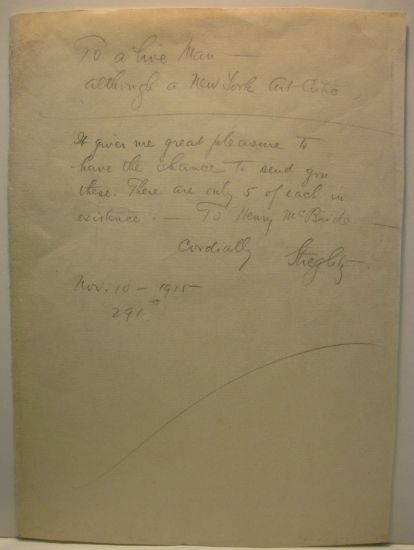 To a live Man —
although a New York Art Critic,
It gives me great pleasure to
have the chance to send you
these. There are only 5 of each in
existence. — To Henry McBride —
Cordially Stieglitz
Nov. 10 — 1915
291.